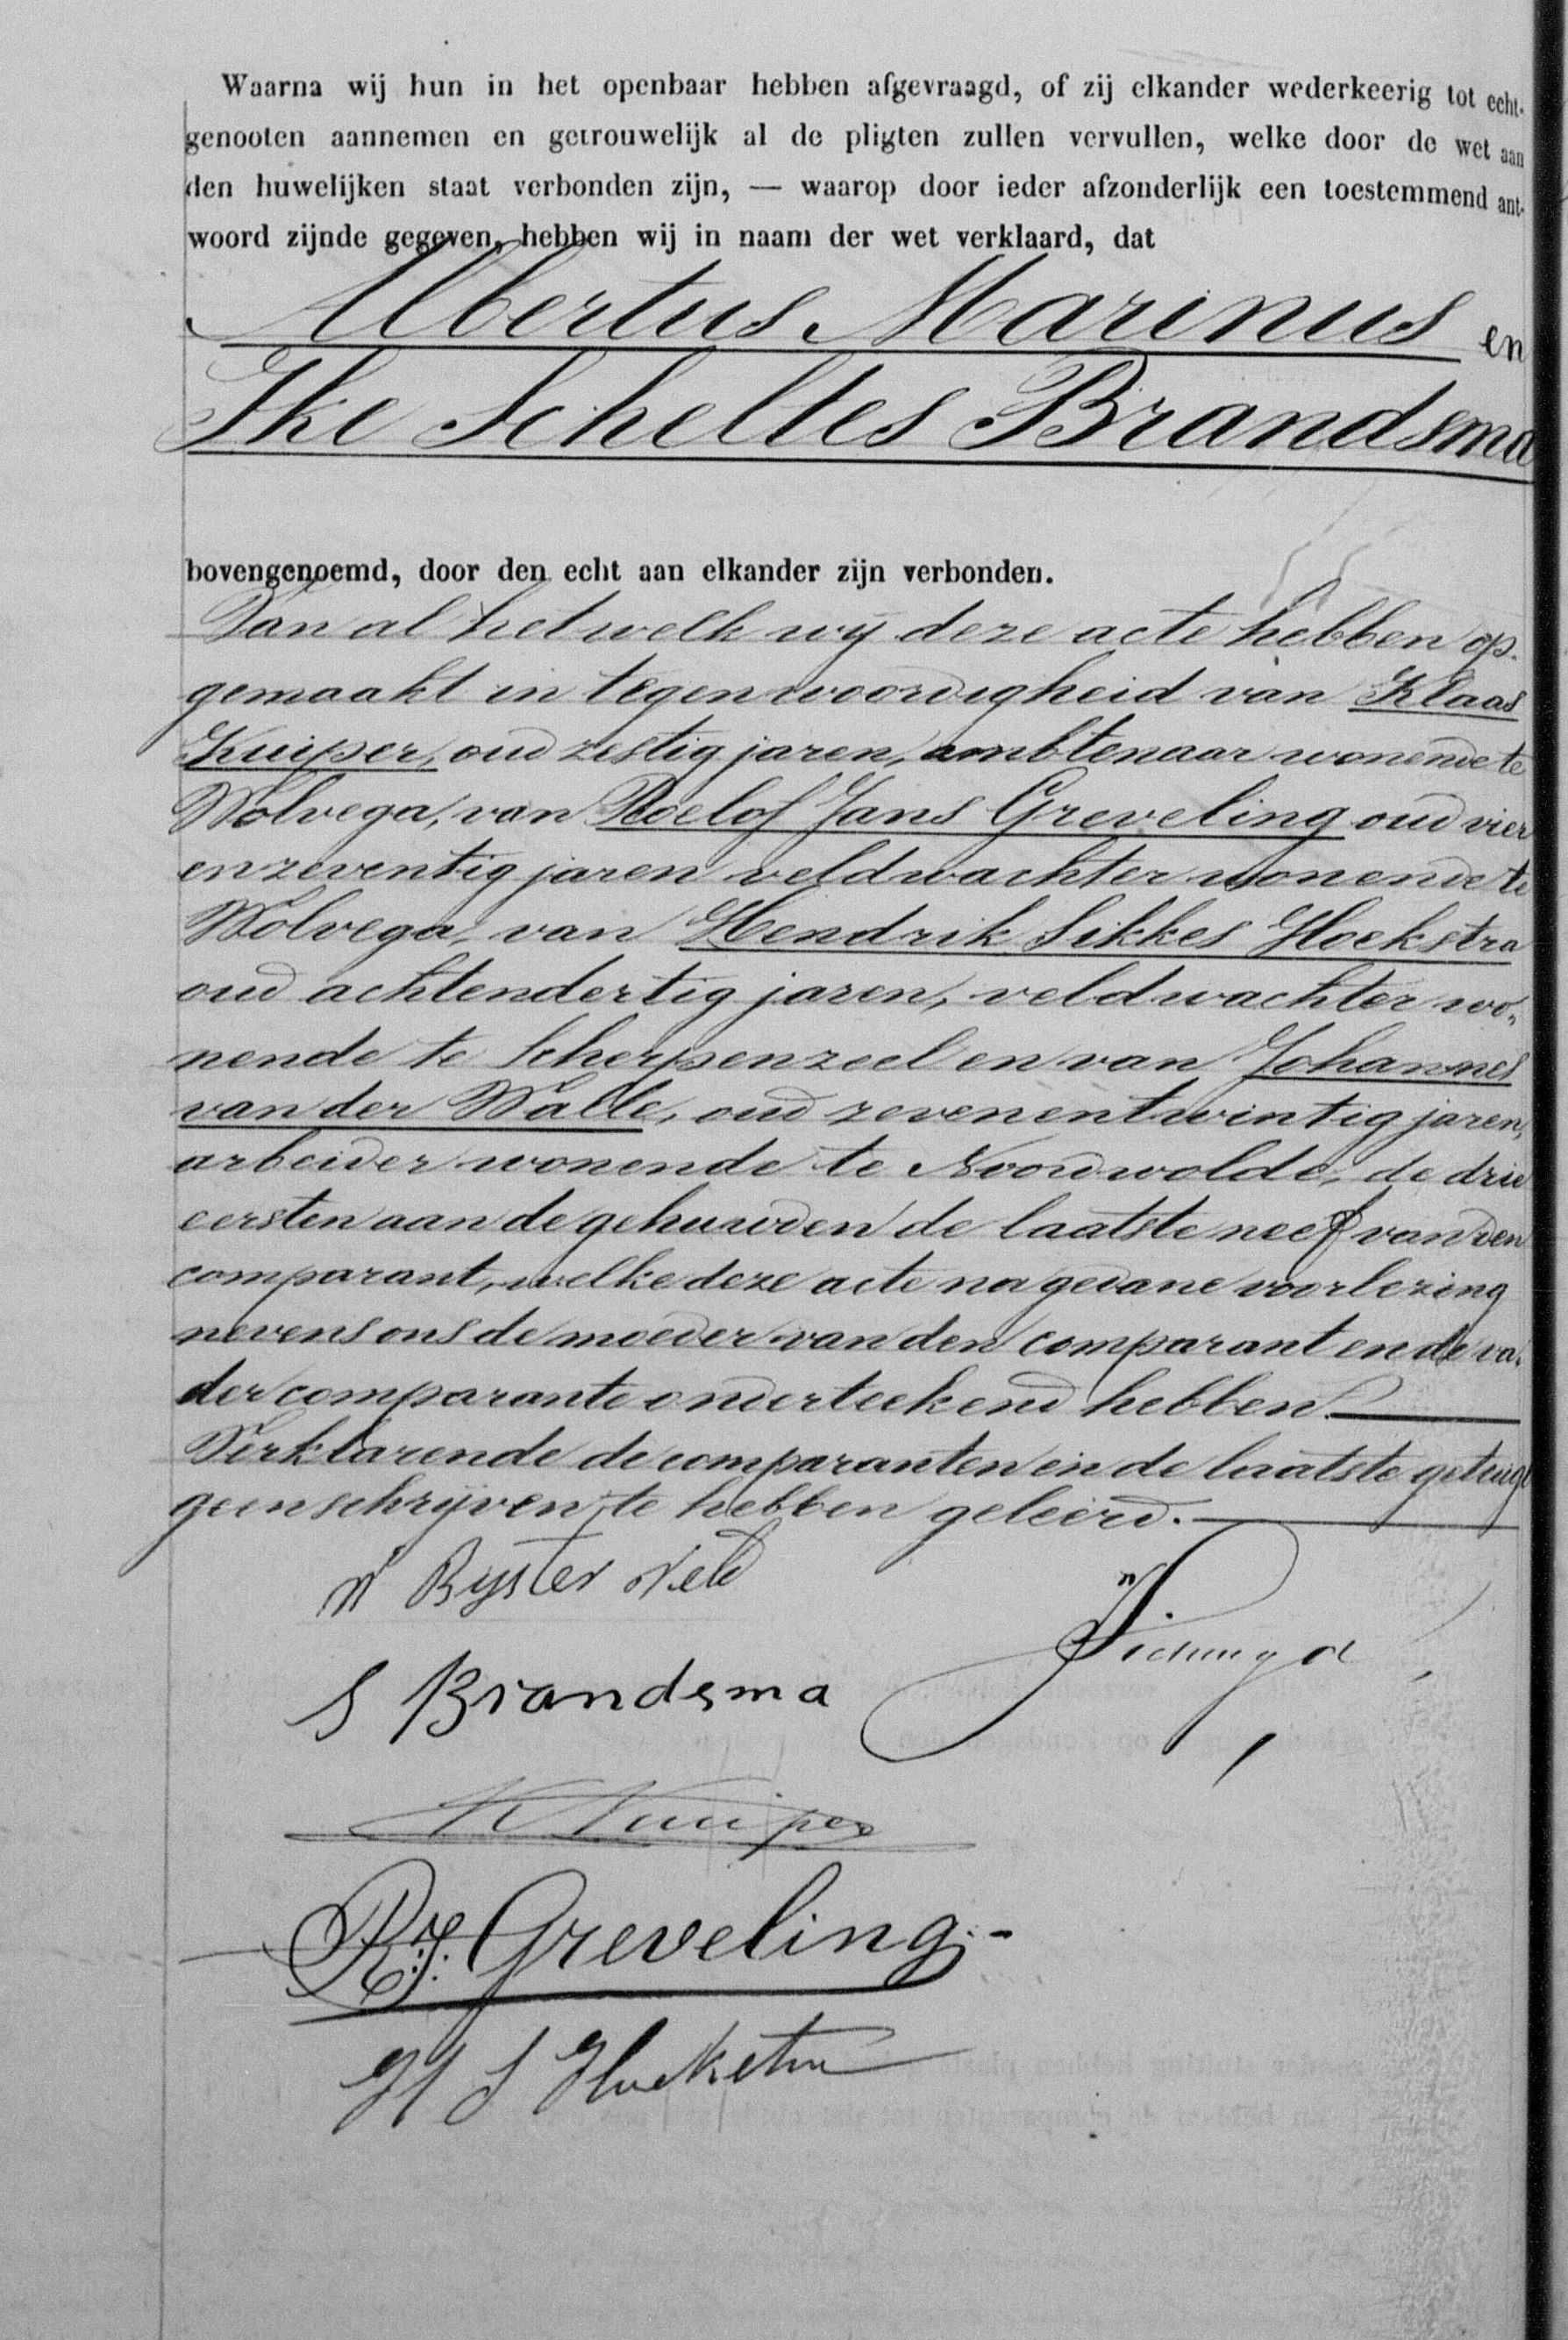 Waarna wij hun in het openbaar hebben afgevraagd, of zij elkander wederkeerig tot echt-
genooten aannemen en getrouwelijk al de pligten zullen vervullen, welke door de wet aan
den huwelijken staat verbonden zijn, — waarop door ieder afzonderlijk een toestemmend ant-
woord zijnde gegeven, hebben wij in naam der wet verklaard, dat
Albertus Marinus en
Ike Scheltes Brandsma
bovengenoemd, door den echt aan elkander zijn verbonden.
Van al hetwelk wij deze acte hebben op-
gemaakt in tegenwoordigheid van Klaas
Kuiper, oud zestig jaren, ambtenaar wonende te
Wolvega, van Roelof Jans Greveling oud vier
en zeventig jaren veldwachter wonende te
Wolvega, van Hendrik Sikkes Hoekstra
oud achtendertig jaren, veldwachter wo-
nende te Scherpenzeel en van Johannes
van der Walle, oud zevenentwintig jaren,
arbeider wonende te Noordwolde, de drie
eersten aan de gehuwden de laatste neef van den
comparant, welke deze acte na gedane voorlezing
nevens ons de moeder van den comparant en de va-
der comparante onderteekend hebben.
Verklarende de comparanten en de laatste getuige
geen schrijven te hebben geleerd.
Bijsterveld
S Brandsma
K Kuiper
R.J. Greveling.-
H S Hoekstra